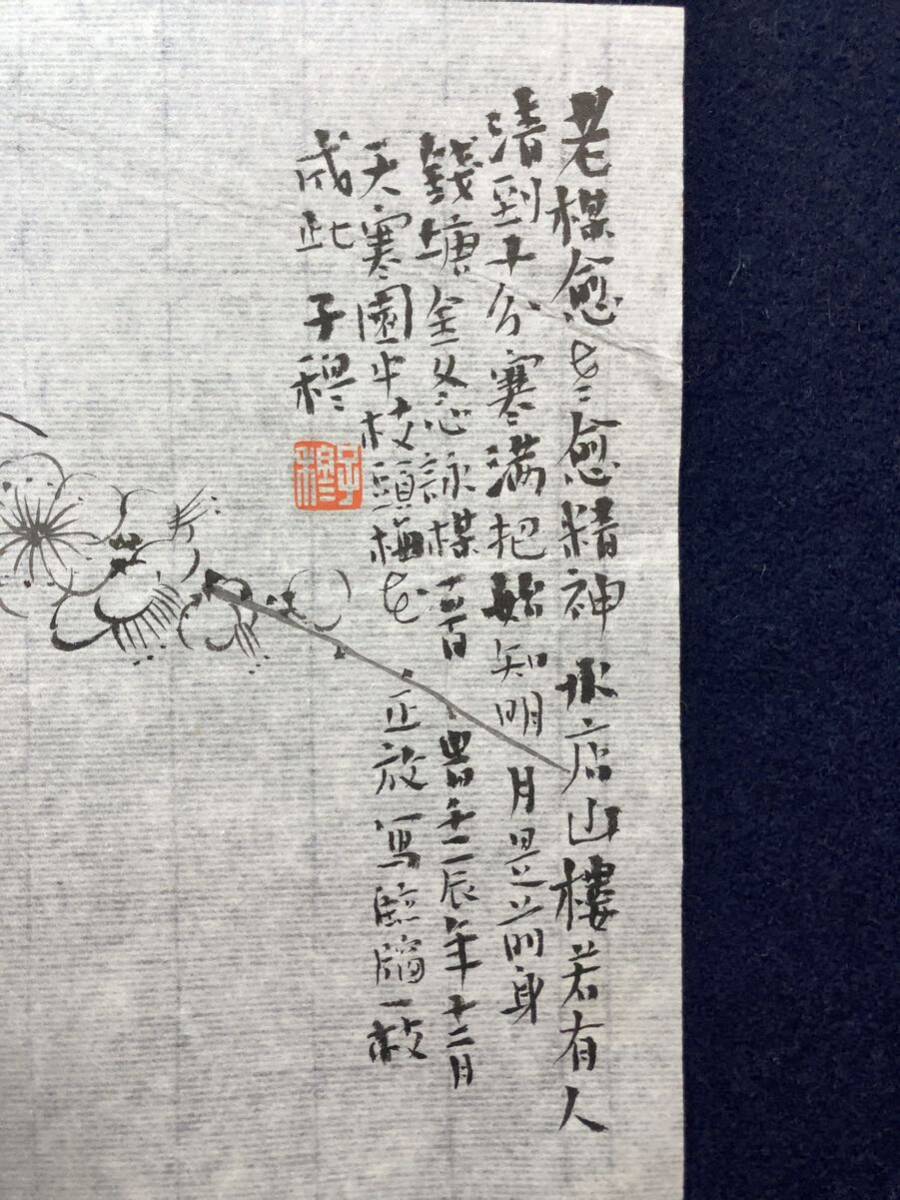 老楳愈老愈精神水店山樓若有人
清到十分寒滿把始知明月是前身
錢塘金冬心詠楳一首旹壬辰年十二月
天寒園中枝頭梅花正放寫臨牕一枝
成此 子穆
子穆